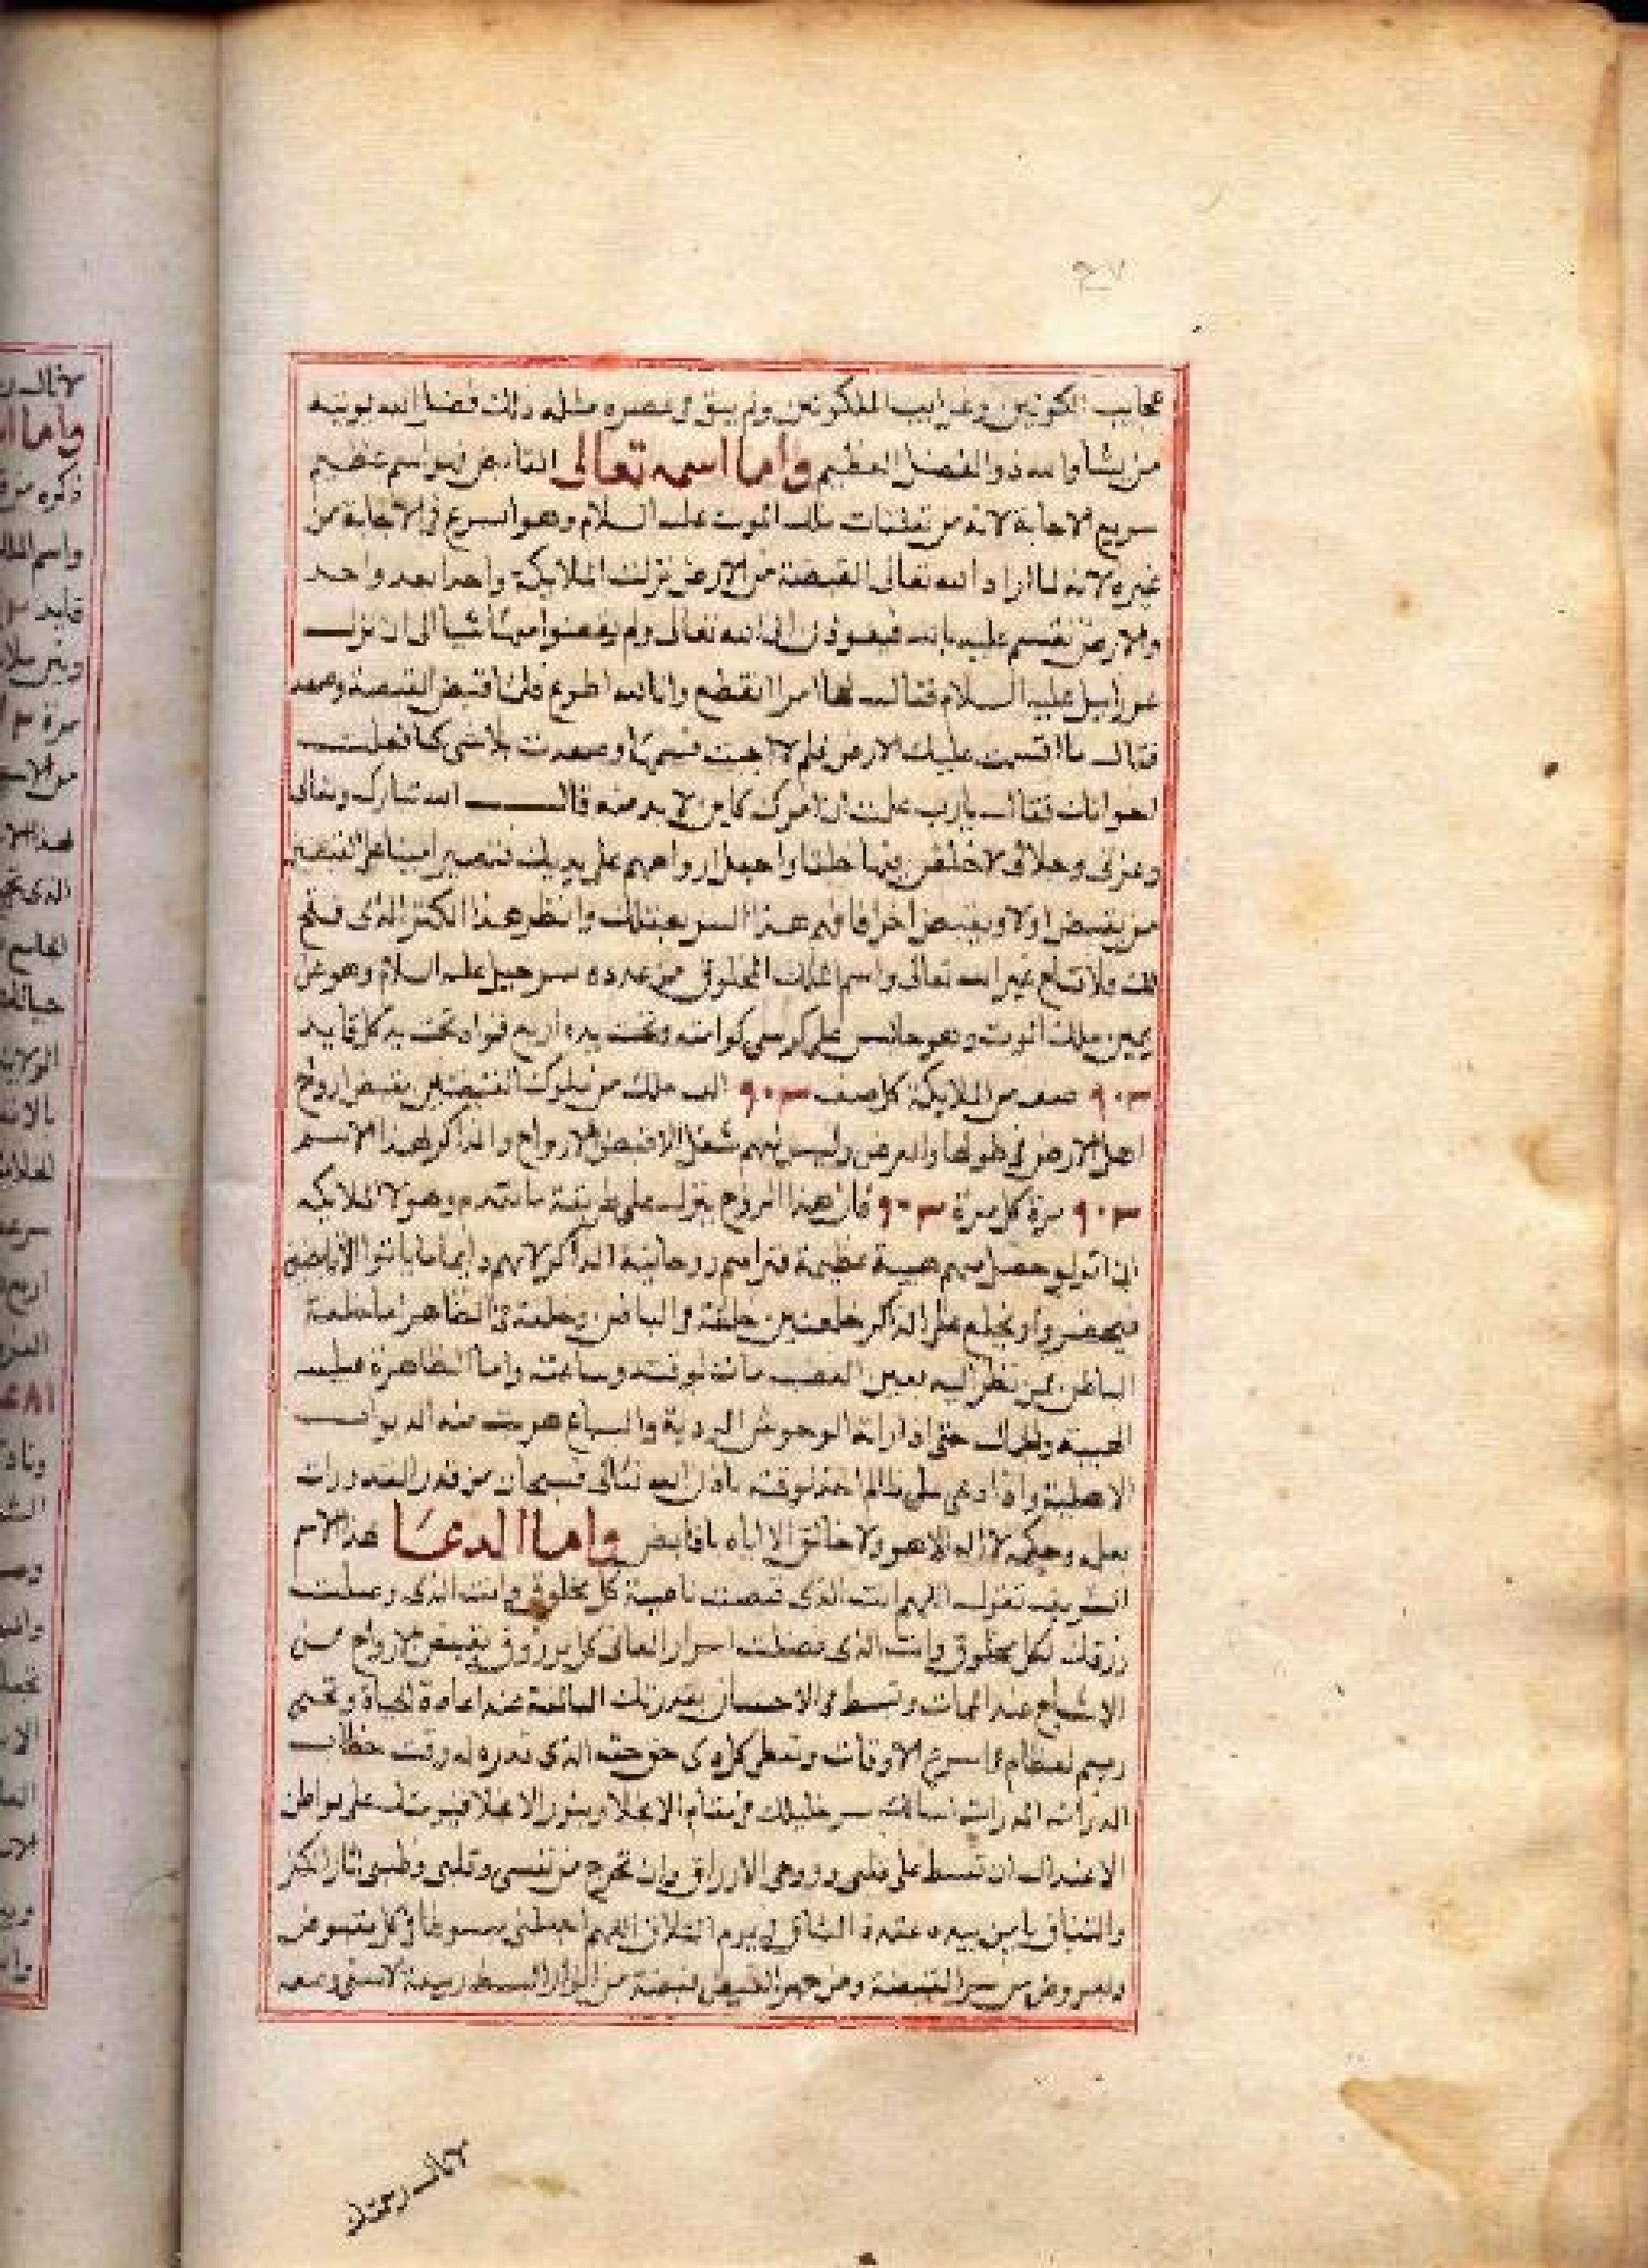 ٩٧
عجايب الكونين وغرايب الملكوتين ولم يبق في عصره مثله ذلك فضل الله يوتيه
من يشا والله ذو الفضل العظيم واما اسمه تعالى القابض فهو اسم عظيم
سريع الاجابة لانه من تعلقات ملك الموت عليه السلام وهو اسرع في الاجابة من
غيره لانه لما اراد الله تعالى القبضة من الارض نزلت الملايكة واحدا بعد واحد
والارض تقسم عليه بالله فيعودن الى الله تعالى ولم يقبضوا منها شيا الى ان نزل
عزراييل عليه السلام فقال لها امرا انقطع وانا لله اطوع فلما قبض القبضة وصعد
فقال ما اقسمت عليك الارض فلم لا اجبت قسمها وصعدت بلا شي كما فعلت
اخوانك فقال يارب علمت ان امرك كاين لا بد منه قال الله تبارك وتعالى
وعزتي وجلالي لاخلقن منها خلقا واجعل ارواحهم على يديك فتصير امينا على القبضتين
من يقبض اولا ويقبض اخرا فافهم هذا السر بعقلك وانظر هذا الكنز الذي فتح
لك ولا تسع غير الله تعالى واسم الملك المخلوق من عدده سرحييل عليه السلام وهو عن
يمين ملك الموت وهو جالس على كرسي كرامته وتحت يده اربع قواد تحت يد كل قايد
٩٠٣ صف من الملايكة كل صف ٩٠٣ الف ملك من ملوك القبضتين يقبض ارواح
اهل الارض في طولها والعرض وليس لهم شغل الا قبض الارواح والذاكر لهذا الاسم
٩٠٣ مرة كل مرة ٩٠٣ فان هذا الروح ينزل على طريقة ما تقدم وهولا الملايكة
اذا اتوا حصل منهم هيبة عظيمة فتراهم روحانية الذاكر لانهم دايما ما ياتوا الا
فيحضروا ويخلع على الذاكر خلعتين خلعة في الباطن وخلعة في الظاهر اما خلعة
الباطن من نظر اليه بعين الغضب مات لوقته وساعته واما الظاهرة فعليه
الهيبة والجمال حتى اذا راته الوحوش البرية والسباع هربت منه الدواب
الاهلية واذا دعى على ظالم اخذ لوقته باذن الله تعالى فسبحان من قدر المقدورات
بعلمه وحكمه لا اله الا هو ولا خالق الا اياه يا قابض واما الدعا هذا الاسم
الشريف تقول اللهم انت الذي قبضت ناصية كل مخلوق وانت الذي وصلت
رزقك لكل مخلوق وانت الذي اسرار المعاني كل مرزوق بقبض الارواح من
الاشباح عند الممات وتبسط الاحسان بقدرتك البالغة عند اعادة الحياة وتحيي
رميم العظام في اسرع الاوقات وتعطي كل ذي حق حقه الذي قدره له وقت خطاب
الذرات اسالك بسر خليلك في مقام الاجلا
الاعتدال ان تبسط على قلبي وروحي الارزاق وان تخرج من نفسي وقلبي وطبعي اثار الكفر
والنفاق يا من بيده عقدة الشاق في يوم التلاق اللهم اجعلني مبسوطا في كل مقبوض